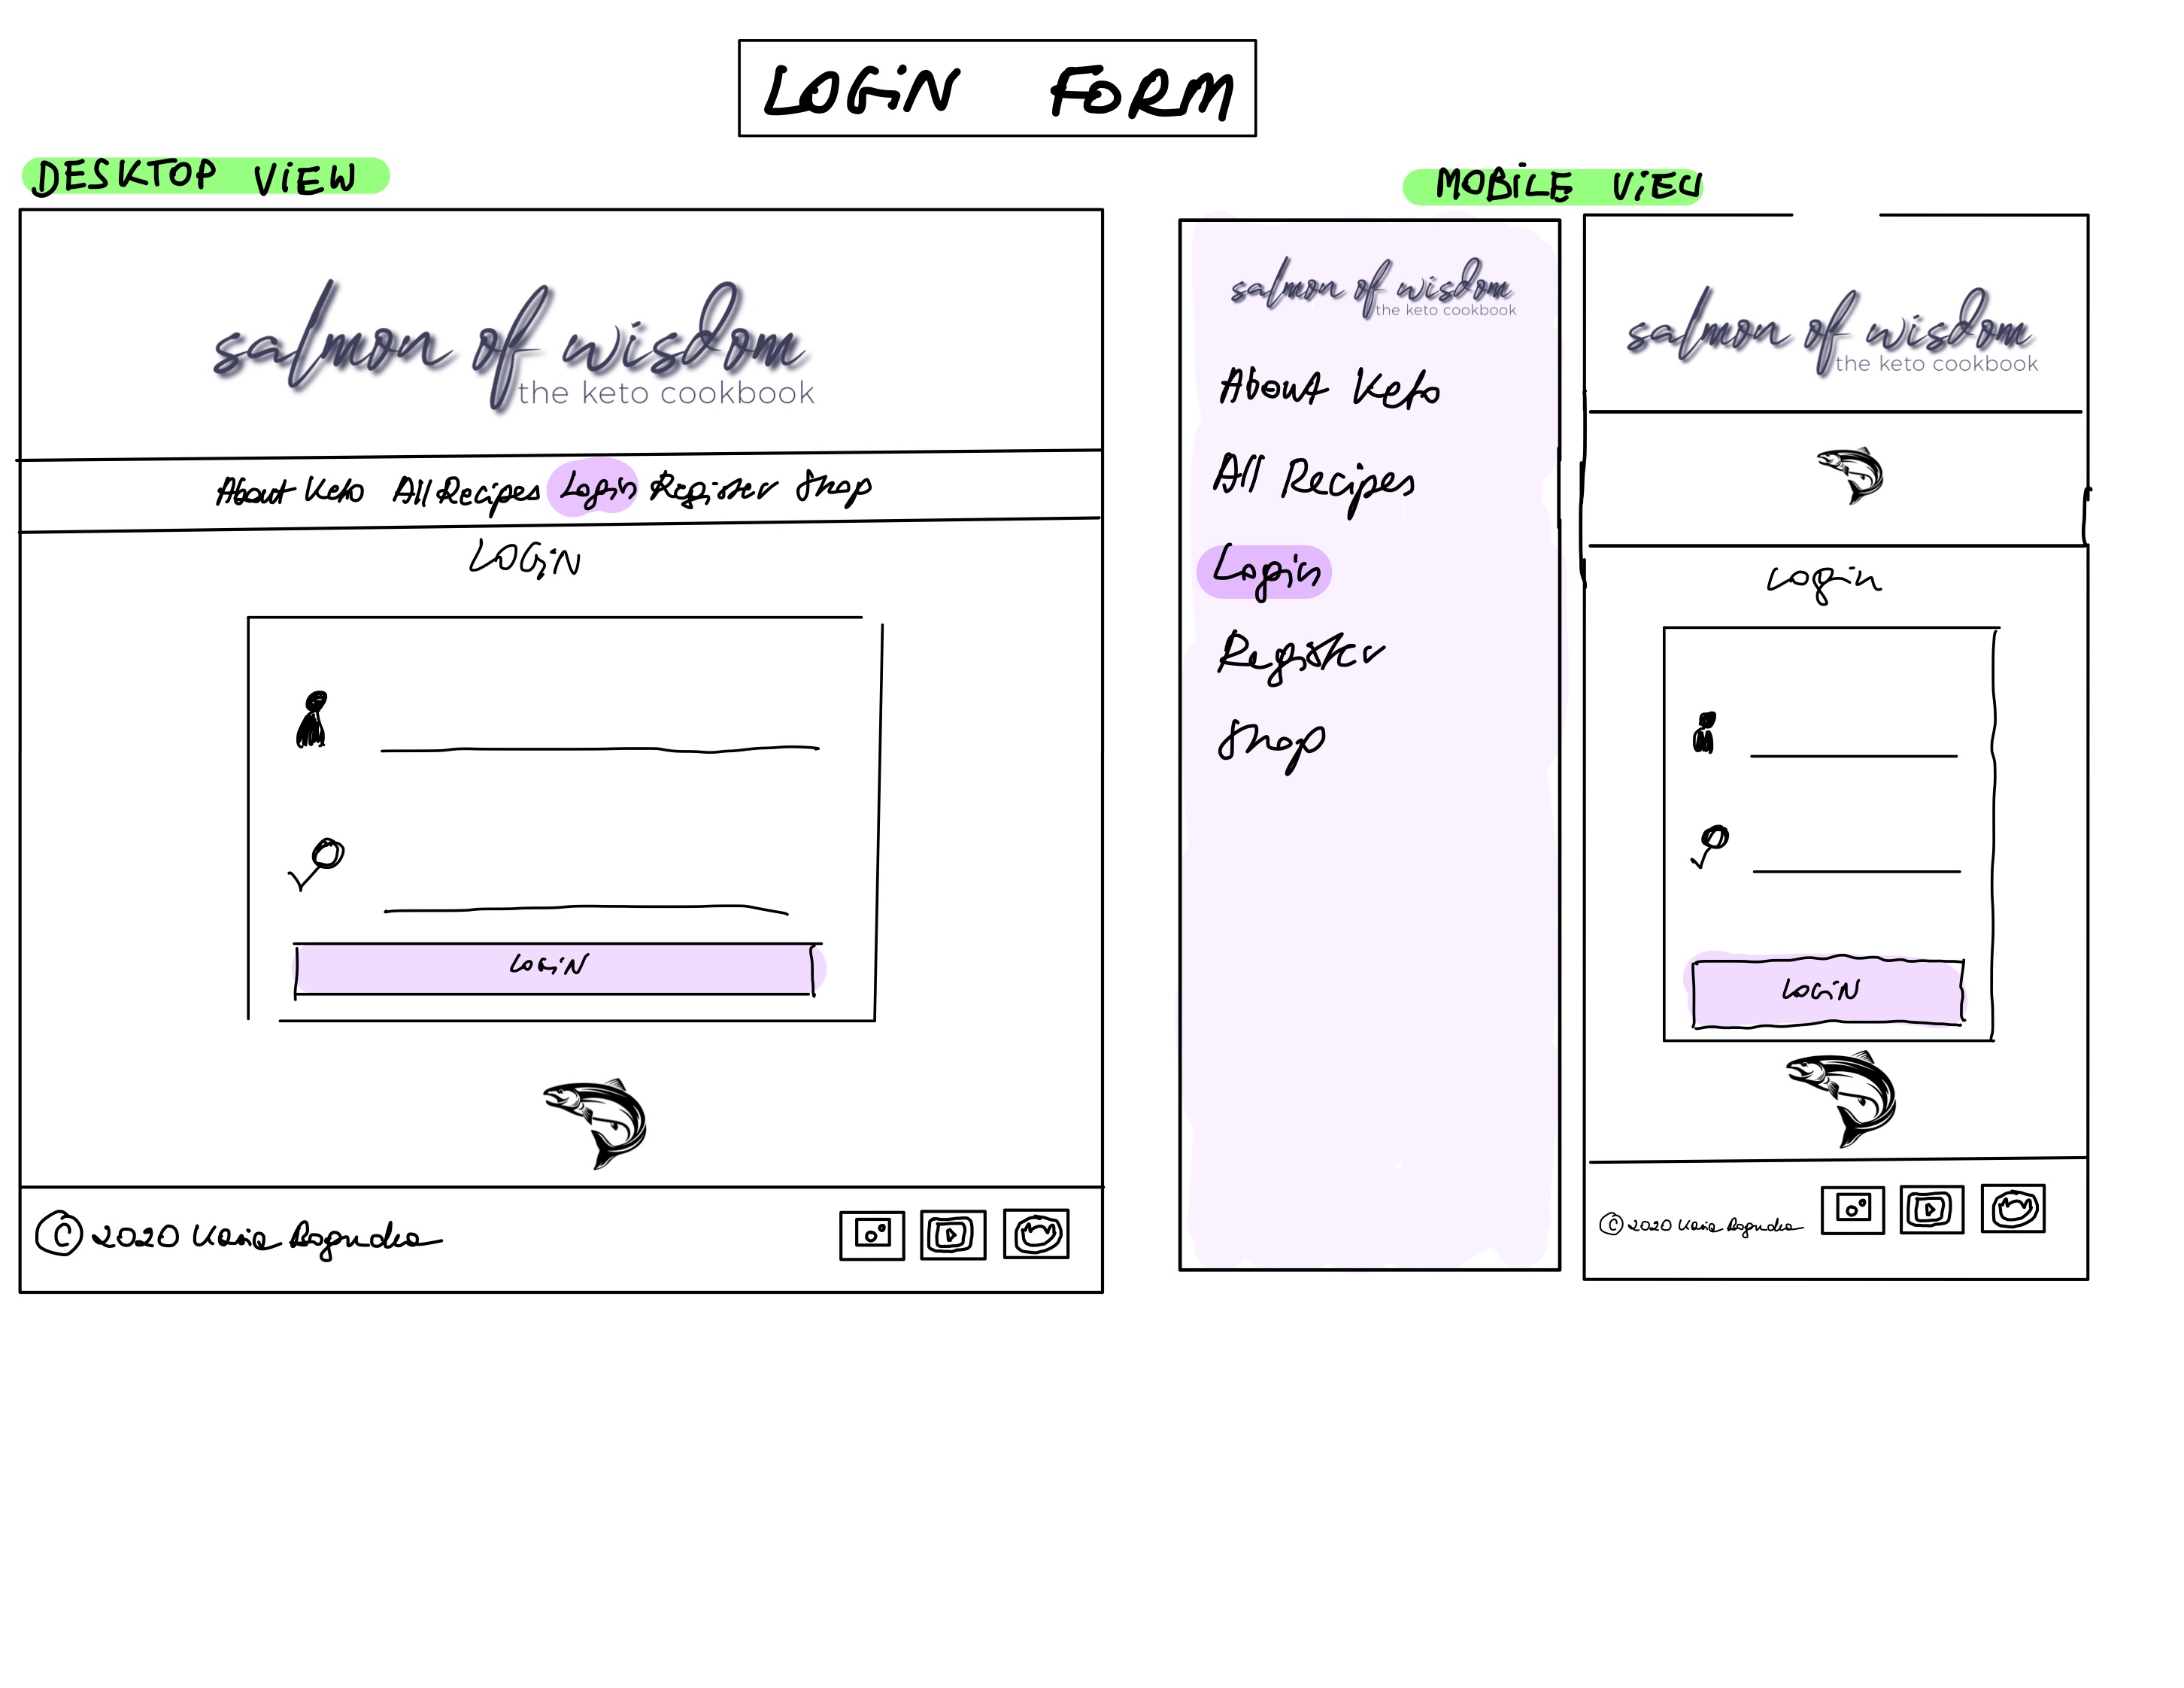 LOGIN FORM
DESKTOP VIEW
salmon of wisdom
the keto cookbook
About Keto All Recipes Login Register Shop
LOGIN
LOGIN
© 2020 Kasia
MOBILE VIEW
salmon of wisdom
the keto cookbook
About Keto
All Recipes
Login
Register
Shop
salmon of wisdom
the keto cookbook
Login
LOGIN
© 2020 Kasia